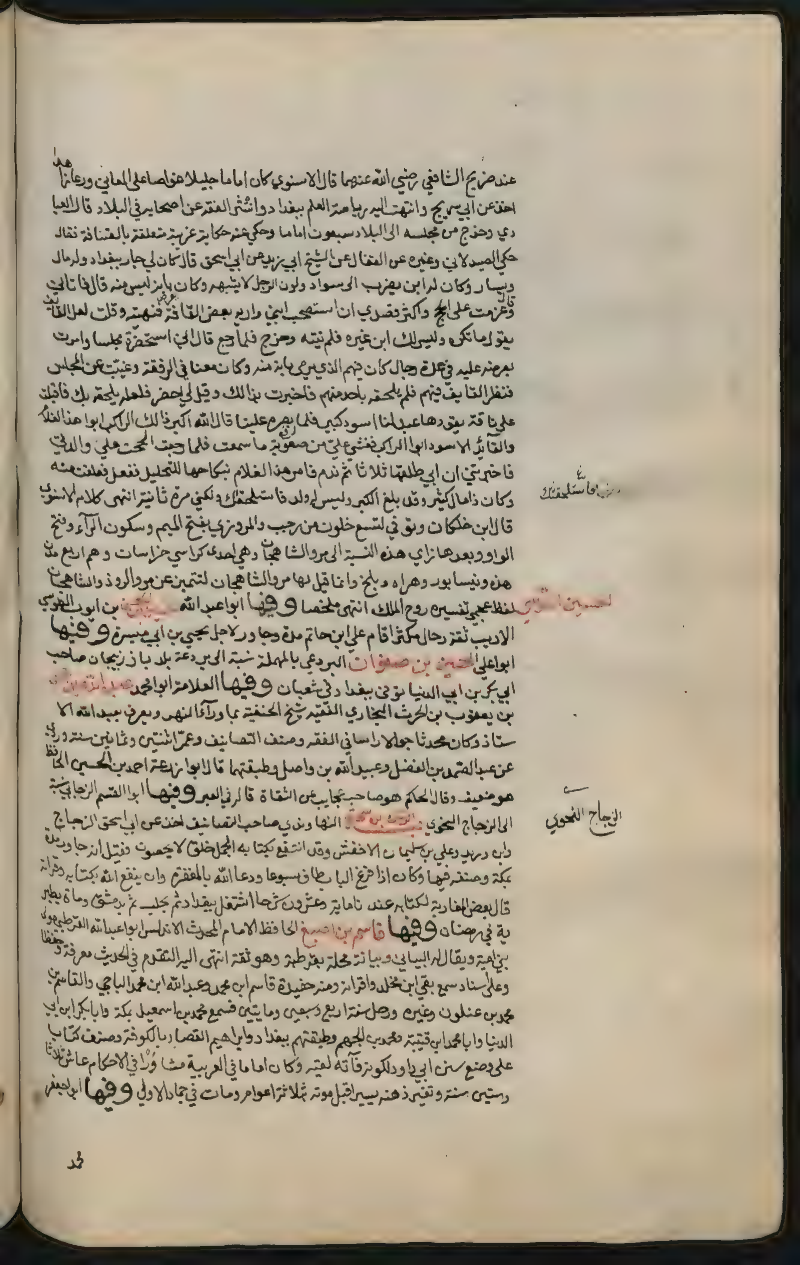 عند ضريح الشافعي رضي الله عنهما قال الاسنوي كان اماما جليلا غواصا على المعاني ورعا زاهدا
اخذ عن ابي سريج وانتهت اليه رياسة العلم ببغداد وانتشر الفقه عن اصحابه في البلاد قال العبا
دي وخرج من مجلسه الى البلاد سبعون اماما وحكي عنه حكاية غريبة متعلقة بالقيافة فقال
حكى الصيدلاني وغيره عن القفال عن الشيخ ابي زيد عن ابي اسحق قال كان لي جار ببغداد وله مال
ويسار وكان له ابن يضرب الى سواد ولون الرجل لا يشبهه وكان يعرض بانه ليس منه قال فاتاني
وقال عزمت على الحج واكثر قصدي ان استصحب ابني واريه بعض القافة فنهيته وقلت لعل القايف
يقول ما تكره وليس لك ابن غيره فلم ينته وخرج فلما رجع قال اني استحضرت مجلسا وامرت
بعرضه عليه في عدة رجال كان فيهم الذي يرمى بانه منه وكان معنا في الرفقة وغيبت عن المجلس
فنظر القايف فيهم فلم يلحقه باحد منهم فاخبرت بذالك وقيل لي احضر فلعله يلحقه بك فاقبلت
على ناقة يقودها عبد لنا اسود كبير فلما وقع بصره علينا قال الله اكبر ذالك الراكب ابو هذا الغلام
والقايد الاسود ابو الراكب فغشي علي من صعوبة ما سمعت فلما رجعت الححت على والدتي
فاخبرتني ان ابي طلقها ثلاثا ثم ندم فامر هذا الغلام بنكاحها للتحليل ففعل فعلقت منه
وكان ذا مال كثير وقد بلغ الكبر وليس له ولد فاستلحقك ونكحني مرة ثانية انتهى كلام الاسنوي
قال ابن خلكان وتوفي لتسع خلون من رجب والمروزي بفتح الميم وسكون الراء وفتح
الواو وبعدها زاي هذه النسبة الى مرو الشاهجان وهي احدى كراسي خراسان وهم اربع مدن
هذه ونيسابور وهراه وبلخ وانما قيل لها مرو الشاهجان لتتميز عن مرو الروذ والشاهجان
لفظ عجمي تفسيره روح الملك انتهى ملخصا وفيها ابو عبد الله الحسين بن ايوب الطوسي
الاديب ثقة رحال مكثر اقام على ابن حاتم مدة وجاور لاجل يحيى بن ابي ميسرة وفيها
ابو علي الحسين بن صفوان البردعي بالمهملة نسبة الى بردعة بلد باذربيجان صاحب
ابي بكر بن ابي الدنيا توفي ببغداد في شعبان وفيها العلامة ابو محمد عبد الله بن
بن يعقوب بن الحرث البخاري الفقيه شيخ الحنفية بما ورآء النهر ويعرف بعبد الله الا
ستاذ وكان محدثا جوالا راسا في الفقه وصنف التصانيف وعمر اثنتين وثمانين سنة وروى
عن عبد الصمد بن الفضل وعبيد الله بن واصل وطبقتهما قال ابو زرعة احمد بن الحسين الحافظ
هو ضعيف وقال الحاكم هو صاحب عجايب عن الثقاة قاله في العبر وفيها ابو القسم الزجاجي نسبة
الى الزجاج النحوي النهاوندي صاحب التصانيف اخذ عن ابي اسحق الزجاج
وابن دريد وعلي بن سليمان الاخفش وقد انتفع بكتابه الجمل خلق لا يحصون فقيل انه جاور مدة
بمكة وصنفه فيها وكان اذا فرغ الباب طاف اسبوعا ودعا الله بالمغفرة وان ينفع الله بكتابه وقرائه
قال بعض المغاربة لكتابه عندنا ماية وعشرون شرحا اشتغل ببغداد ثم بحلب ثم بدمشق ومات بطبر
ية في رمضان وفيها قاسم بن اصبغ الحافظ الامام المحدث الاندلس ابو عبد الله القرطبي مولى
بني امية ويقال له البياني وبيانة محلة بقرطبة وهو ثقة انتهى اليه التقدم في الحديث معرفة وحفظا
وعلو اسناد سمع بقي ابن مخلد واقرانه ومنه حفيده قاسم ابن محمد وعبد الله ابن محمد الباجي والقاسم بن
محمد بن عسلون وغيره ورحل سنة اربع وسبعين ومايتين فسمع محمد بن اسمعيل بمكة وابا بكر ابن ابي
الدنيا وابا محمد ابن قتيبة ومحمد بن الجهم وطبقتهم ببغداد وابراهيم القصار بالكوفة وصنف كتابا
على وضع سنن ابي داود لكونه فاته لقيه وكان اماما في العربية مشاورا في الاحكام عاش ثلاثا
وستين سنة وتغير ذهنه يسيرا قبل موته بثلاثة اعوام ومات في جماد الاولى وفيها ابو جعفر
محمد
فاستلحقك
الحسين الطوسي
الزجاج النحوي